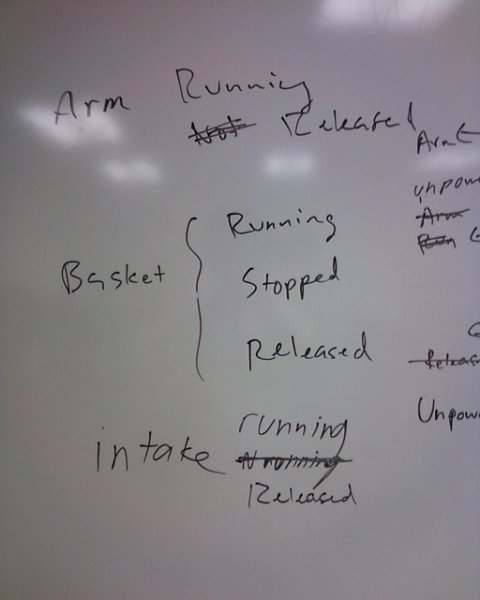 Arm Running
Not Released
Basket { Running
Stopped
Released
intake running
N running
Released
Arm
unpow
Arm
Run
Releas
Unpow